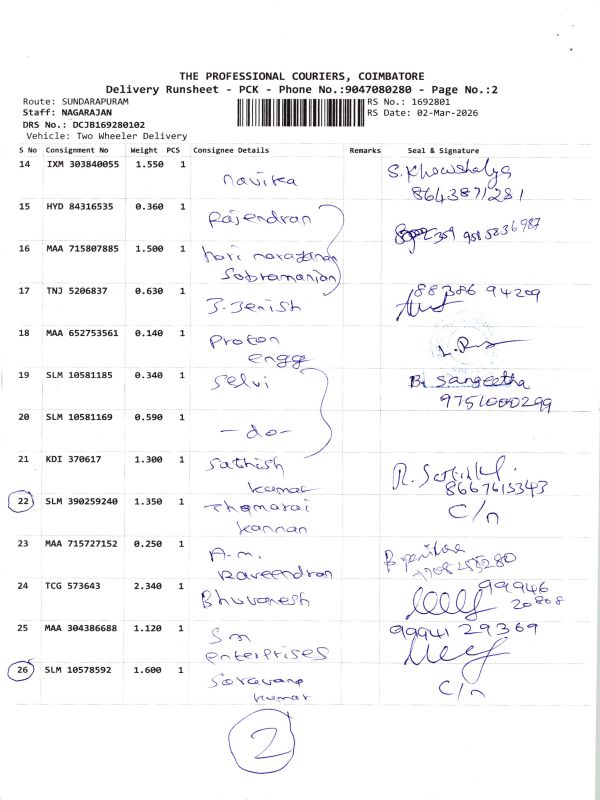 THE PROFESSIONAL COURIERS, COIMBATORE
Delivery Runsheet - PCK - Phone No.:9047080280 - Page No.:2
Route: SUNDARAPURAM RS No.: 1692801
Staff: NAGARAJAN RS Date: 02-Mar-2026
DRS No.: DCJB169280102
Vehicle: Two Wheeler Delivery
S No Consignment No Weight PCS Consignee Details Remarks Seal & Signature
14 IXM 303840055 1.550 1 navika S. Khowshalya
8643871281
15 HYD 84316535 0.360 1 Rajendran 9585836987
16 MAA 715807885 1.500 1 hari narayanan
Sobramanion
17 TNJ 5206837 0.630 1 J. Jenish 88386 94209
18 MAA 652753561 0.140 1 Proton
engg
19 SLM 10581185 0.340 1 Selvi B. Sangeetha
9751000299
20 SLM 10581169 0.590 1 -do-
21 KDI 370617 1.300 1 Sathish
kumar 8667615343
22 SLM 390259240 1.350 1 Thamarai C/n
kannan
23 MAA 715727152 0.250 1 A.m.
Raveendran
24 TCG 573643 2.340 1 Bhuvanesh 99946
20808
25 MAA 304386688 1.120 1 Sm 99941 29369
enterprises
26 SLM 10578592 1.600 1 Saravana C/n
kumar
2